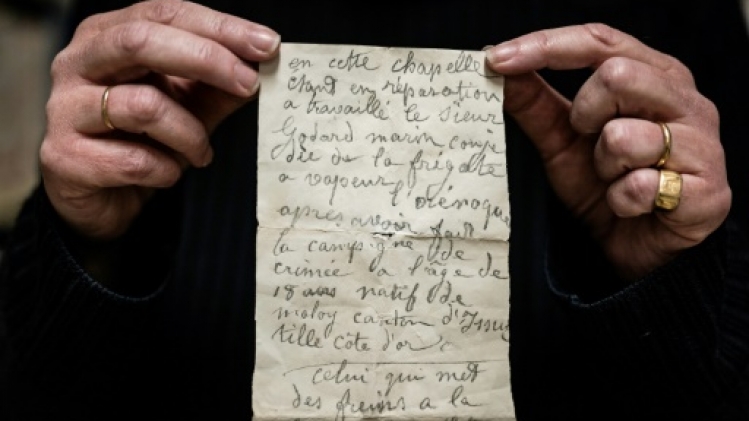 en cette chapelle
étant en réparation
a travaillé le sieur
Godard marin conje
dée de la frégate
a vapeur l'orénoque
apres avoir fait
la campagne de
crimée a l'âge de
18 ans natif de
moloy canton d'Issur
tille côte d'or
Celui qui met
des freins a la